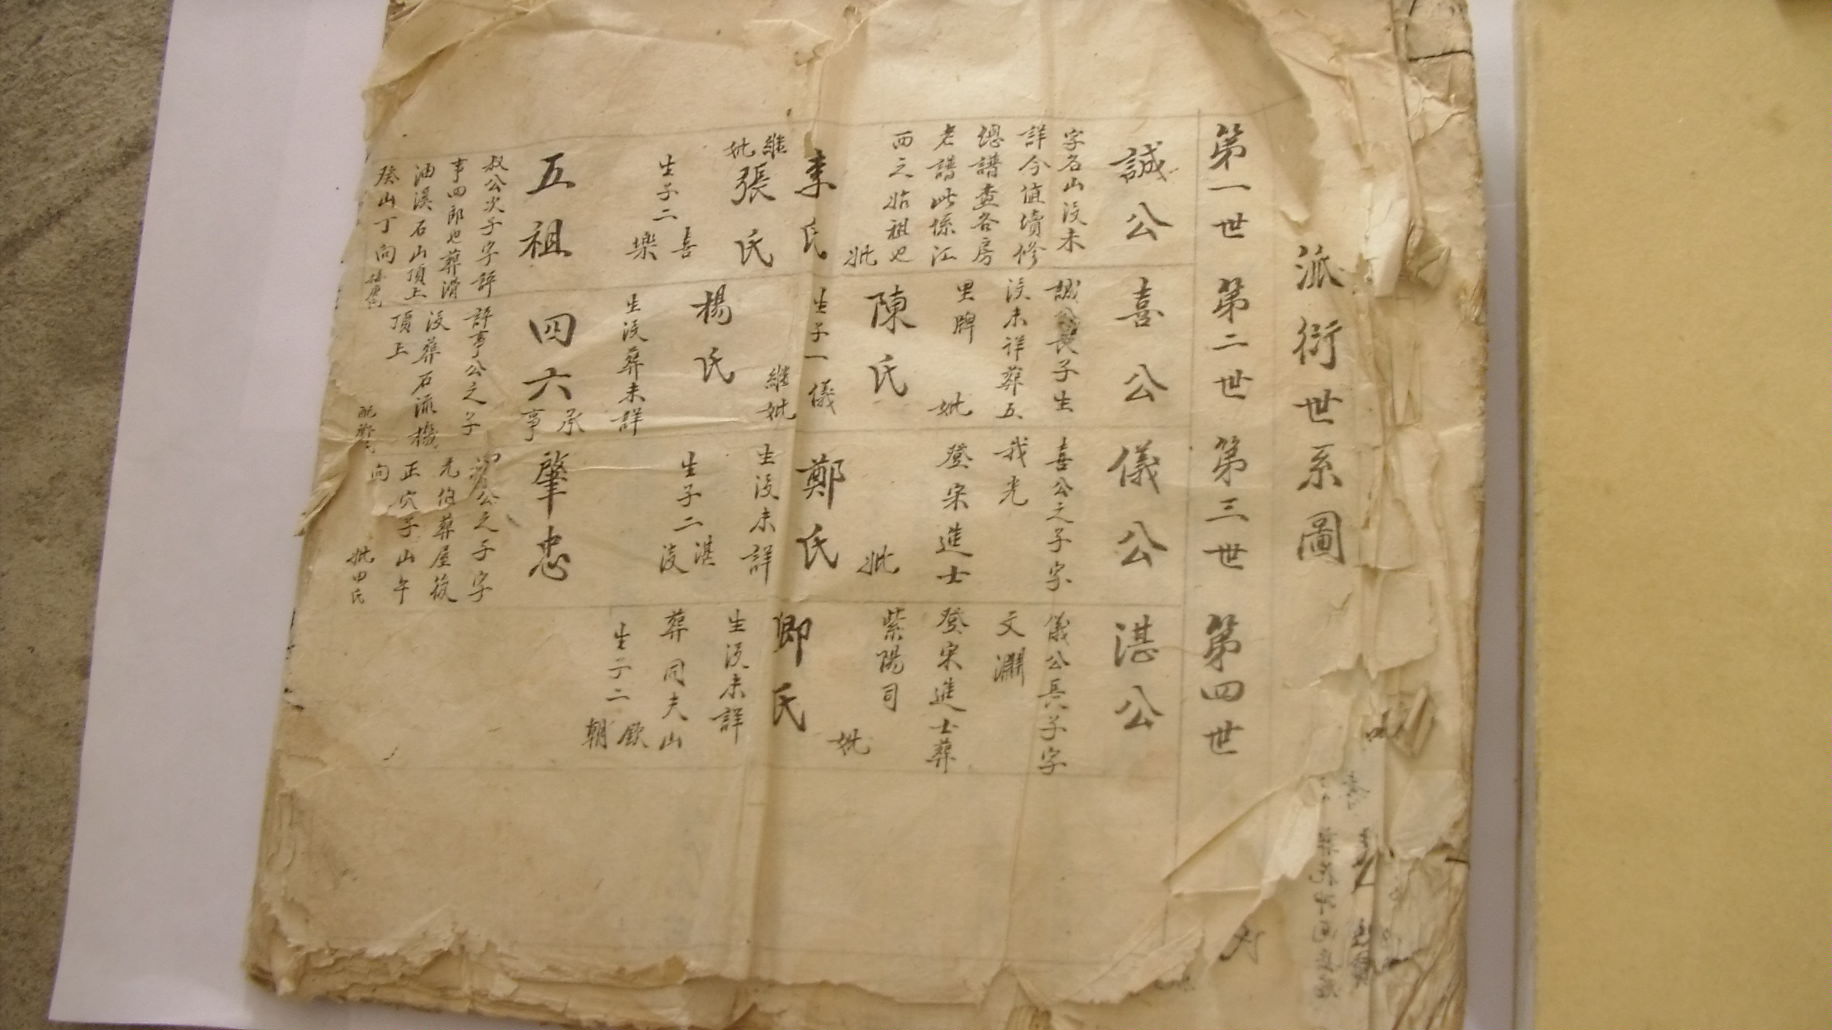 派衍世系圖
第一世
第二世
第三世
第四世
誠公
字名山沒未
詳今值續修
總譜查各房
老譜此係江
西之始祖也
妣
李氏
繼妣
張氏
生子二
喜
樂
喜公
誠公長子生
沒未祥葬五
里牌
妣
陳氏
生子一儀
繼妣
楊氏
生沒葬未詳
儀公
喜公之子字
我光
登宋進士
妣
鄭氏
生沒未詳
生子二
湛
湛公
儀公長子字
文淵
登宋進士葬
紫陽司
妣
卿氏
生沒未詳
葬同夫山
生子二
欽
朝
五祖
叔公次子字評
事四郎也葬滑
油溪石山頂上
癸山丁向
四六
承事
評事公之子
沒葬石流機
頂上
肇忠
公之子字
元伯葬屋後
正穴子山午
向
妣田氏